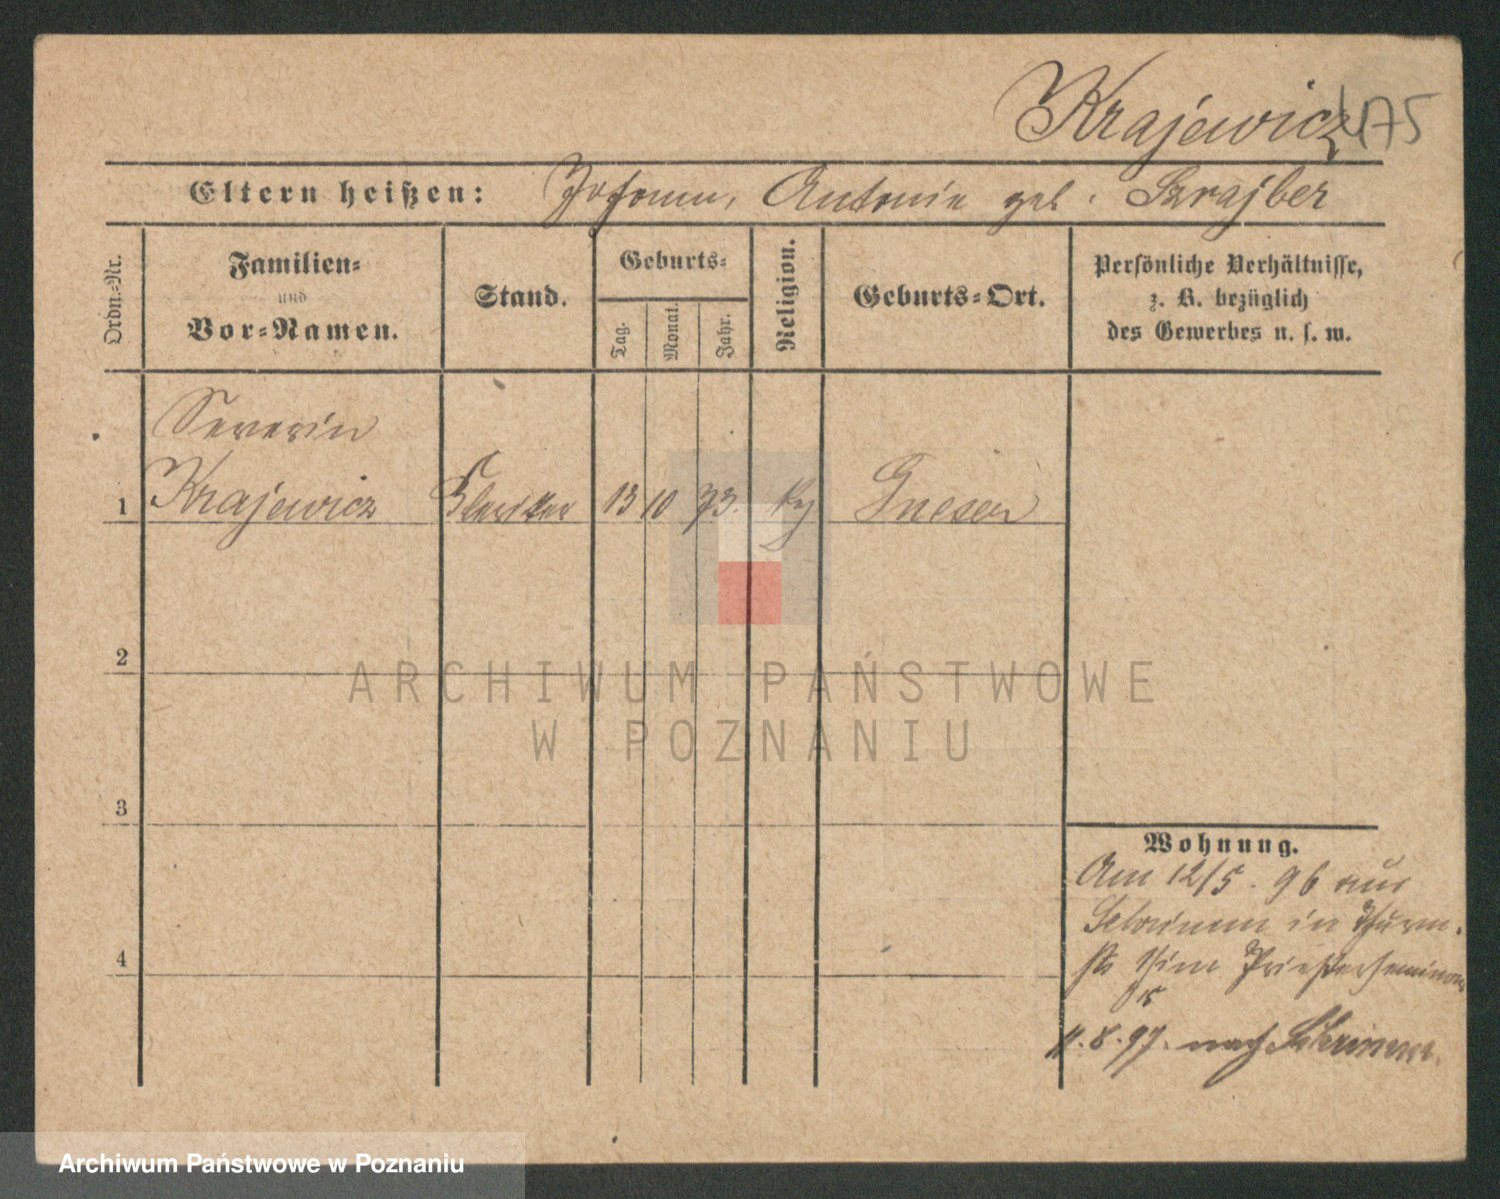 Krajewicz 475
Eltern heißen: Johann, Antonie geb. Szrajber
Ordn.-Nr.
Familien-
und
Vor-Namen.
Stand.
Geburts-
Tag.
Monat.
Jahr.
Religion.
Geburts-Ort.
Persönliche Verhältnisse,
z. B. bezüglich
des Gewerbes u. s. w.
Severin
1 Krajewicz Kleriker 13 10 73. Gnesen
2
3
4
Wohnung.
Am 12/5. 96 aus
in Thurm-
Priesterseminar
11.8.97. nach Schrimm.
ARCHIWUM PAŃSTWOWE
W POZNANIU
Archiwum Państwowe w Poznaniu